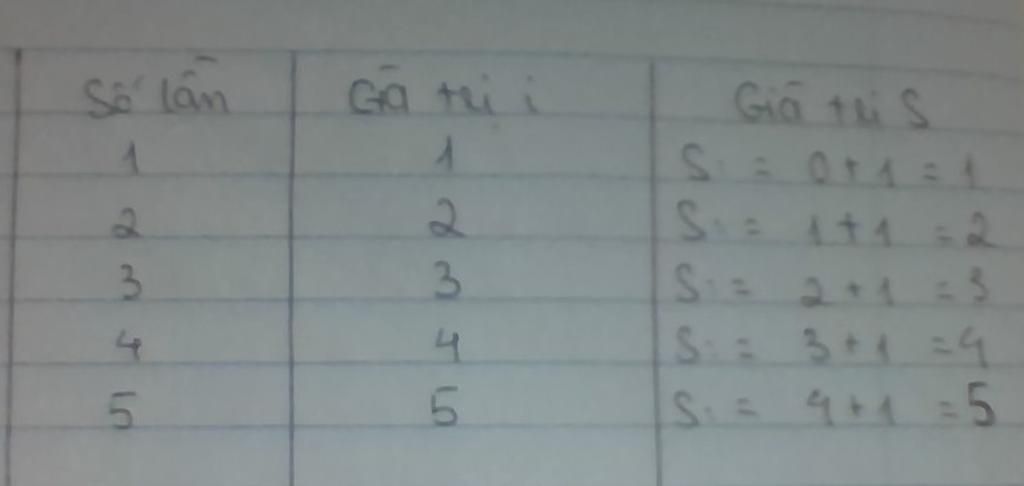 Số lần Gá trị i Giá trị S
1 1 S := 0+1 = 1
2 2 S := 1+1 = 2
3 3 S := 2+1 = 3
4 4 S := 3+1 = 4
5 5 S := 4+1 = 5